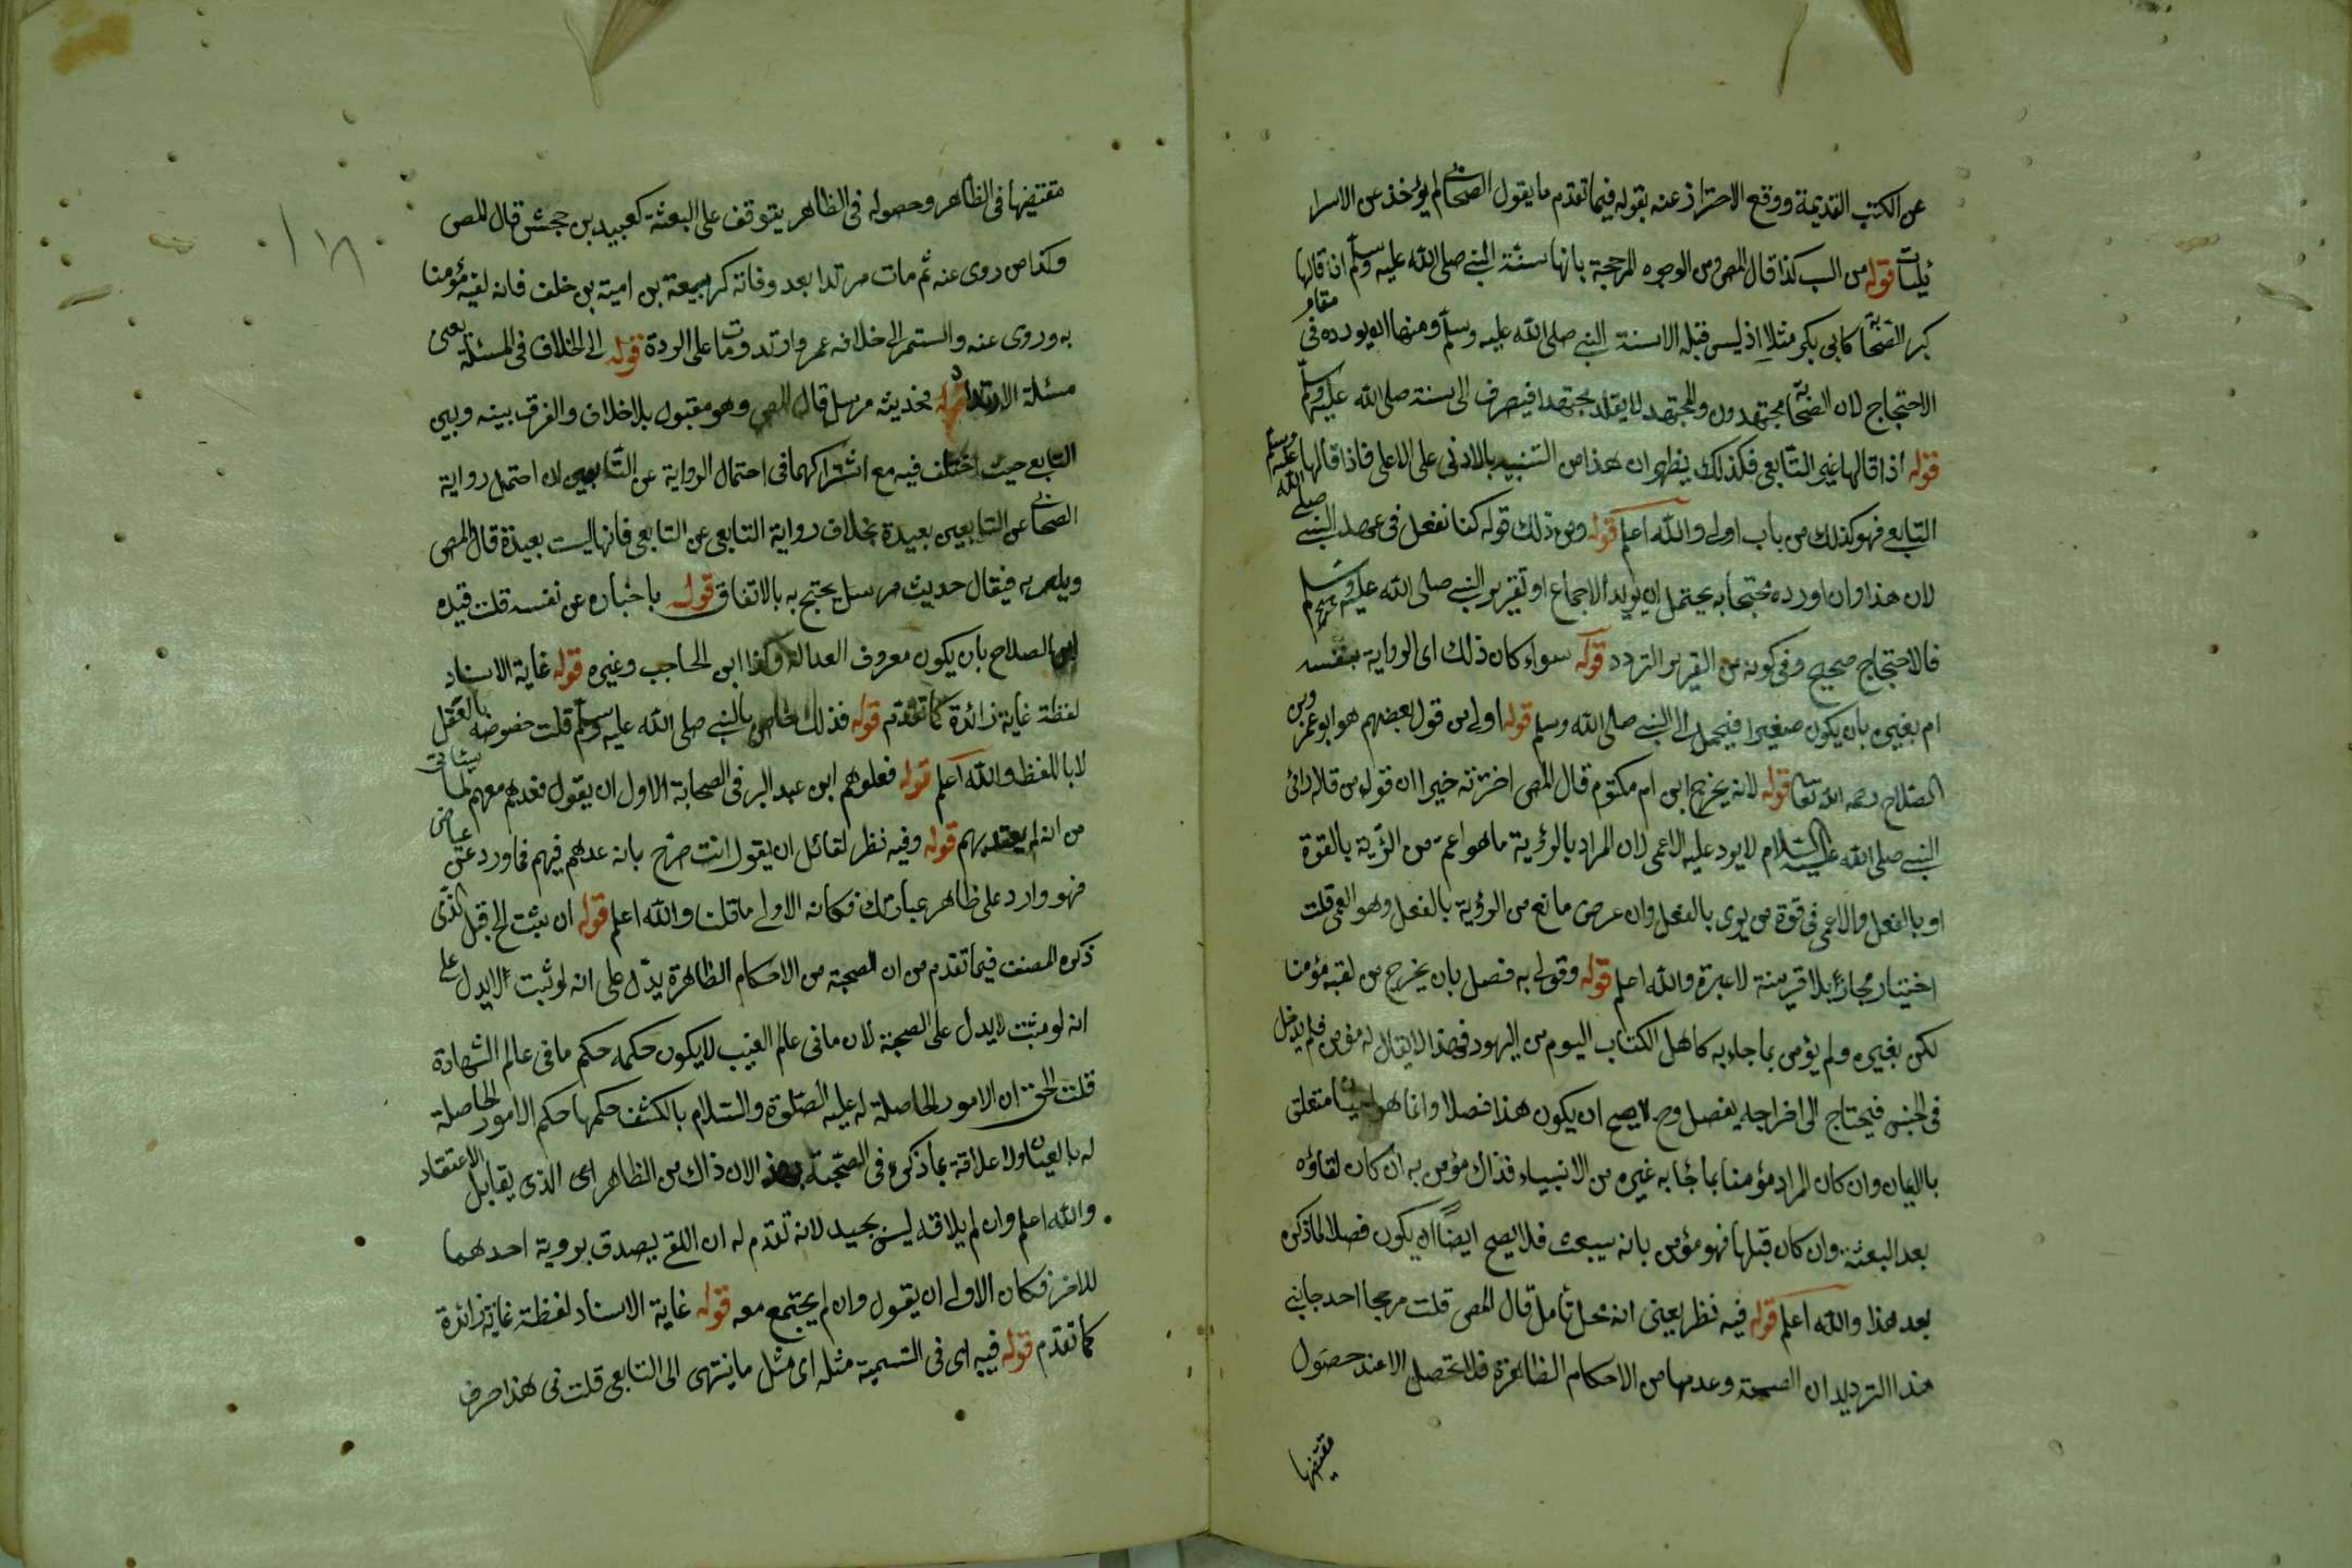 عن الكتب القديمة ووقع الاحتراز عنه بقوله فيما تقدم ما يقول الصحابي لم يؤخذ عن الاسرا
ئيليات قوله من السب كذا قال المص ومن الوجوه المرجحة بانها سنة النبي صلى الله عليه وسلم ان قالها
كبر الصحابة كابي بكر مثلا اذ ليس قبله الا سنة النبي صلى الله عليه وسلم ومنها ان يورده في مقام
الاحتجاج لان الصحابة مجتهدون والمجتهد لا يقلد مجتهدا فيصرف الى سنة صلى الله عليه وسلم
قوله اذا قالها غير التابعي فكذلك يظهر ان هذا من التنبيه بالادنى على الاعلى فاذا قالها
التابع فهو كذلك من باب اولى والله اعلم قوله ومن ذلك قوله كنا نفعل في عهد النبي صلى الله عليه وسلم
لان هذا وان اورده محتجا به يحتمل ان يريد الاجماع او تقرير النبي صلى الله عليه وسلم
فالاحتجاج صحيح وفي كونه من التقرير التردد قوله سواء كان ذلك اى الرواية بنفسه
ام بغيره بان يكون صغيرا فيحمل الى النبي صلى الله وسلم قوله اولى من قول بعضهم هو ابو عمرو بن
الصلاح رحمه الله تعا قوله لانه يخرج ابن ام مكتوم قال المص اخترته خيرا ان قوله من قال رائ
النبي صلى الله عليه السلام لا يرد عليه الاعمى لان المراد بالرؤية ما هو اعم من الرؤية بالقوة
او بالفعل والاعمى في قوة من يرى بالفعل وان عرض مانع من الرؤية بالفعل وهو العمى قلت
اختيار مجاز بلا قرينة لا عبرة والله اعلم قوله وقولي به فصل بان يخرج من لقيه مؤمنا
لكن بغيره ولم يؤمن بما جاء به كاهل الكتاب اليوم من اليهود فهذا لا يقال له مؤمن فلم يدخل
في الجنس فيحتاج الى اخراجه بفصل وح لا يصح ان يكون هذا فصلا وانما هو لبيان متعلق
بالايمان وان كان المراد مؤمنا بما جاء به غيره من الانبياء فذاك مؤمن به ان كان لقاؤه
بعد البعثة وان كان قبلها فهو مؤمن بانه سيبعث فلا يصح ايضا ان يكون فصلا لما ذكره
بعد هذا والله اعلم قوله فيه نظر يعني انه محل تأمل قال المص قلت مرجحا احد جانبي
هذا الترديد ان الصحبة وعدمها من الاحكام الظاهرة فلا تحصل الا عند حصول
مقتضيها
١٨
مقتضيها في الظاهر وحصوله في الظاهر يتوقف على البعثة كعبيد بن جحش قال المص
وكذا من روى عنه ثم مات مرتدا بعد وفاته كربيعة بن امية بن خلف فانه لقيه مؤمنا
به وروى عنه واستمر الى خلافة عمر وارتد ومات على الردة قوله الى الخلاف في المسئلة يعنى
مسئلة الارتداد قوله فحديثه مرسل قال المص وهو مقبول بلا خلاف والفرق بينه وبين
التابع حيث اختلف فيه مع اشتراكهما في احتمال الرواية عن التابعين ان احتمل رواية
الصحابي عن التابعين بعيدة بخلاف رواية التابعي عن التابعي فانها ليست بعيدة قال المص
ويلغز به فيقال حديث مرسل يحتج به بالاتفاق قوله باخباره عن نفسه قلت قيده
ابن الصلاح بان يكون معروف العدالة وكذا ابن الحاجب وغيره قوله غاية الاسناد
لفظة غاية زائدة كما تقدم قوله فذلك خاص بالنبي صلى الله عليه وسلم قلت خصوصه بالعقل
لا باللفظ والله اعلم قوله فعلوهم ابن عبد البر في الصحابة الاول ان يقول فعدهم معهم لما سيأتي
من انه لم يعتد بهم قوله وفيه نظر لقائل ان يقول انت صرح بانه عدهم فيهم فما ورد على عياض
فهو وارد على ظاهر عبارتك فكانه الاولى ما قلنا والله اعلم قوله ان يثبت الخ قيل الذى
ذكره المصنف فيما تقدم من ان الصحبة من الاحكام الظاهرة يدل على انه لو ثبت لا يدل على
انه لو ثبت لا يدل على الصحبة لان ما في عالم الغيب لا يكون حكمه حكم ما في عالم الشهادة
قلت الحق ان الامور الحاصلة له عليه الصلوة والسلام بالكشف حكمها حكم الامور الحاصلة
له بالعيان ولا علاقة بما ذكره في الصحبة بهذا لان ذاك من الظاهر اى الذى يقابل الاعتقاد
والله اعلم وان لم يلاقه ليس بجيد لانه تقدم له ان اللقى يصدق برؤية احدهما
للاخر فكان الاولى ان يقول وان لم يجتمع معه قوله غاية الاسناد لفظة غاية زائدة
كما تقدم قوله فيه اى في التسمية مثله اى مثل ما ينتهى الى التابعي قلت في هذا صرف